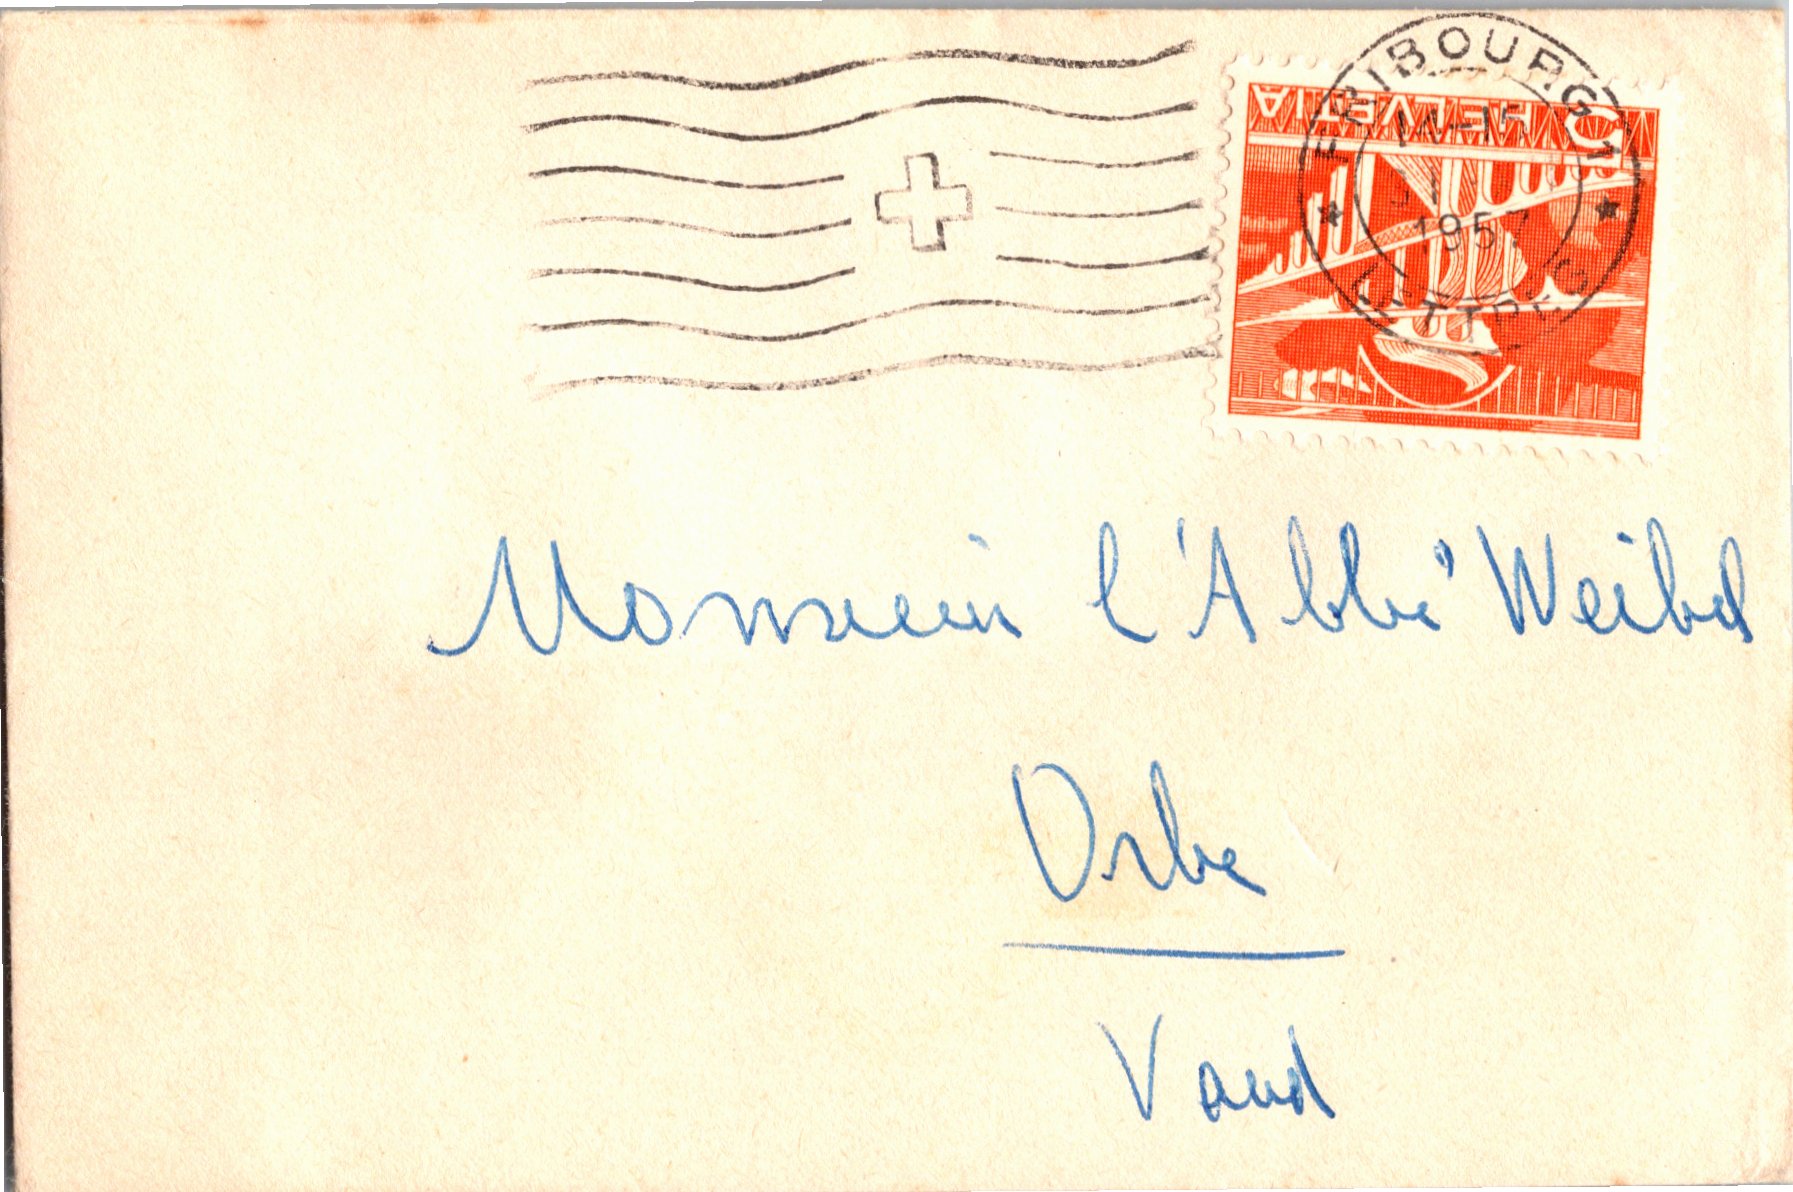 FRIBOURG 1
14-15
1957
LETTRES
HELVETIA 5
Monsieur l'Abbé Weibel
Orbe
Vaud